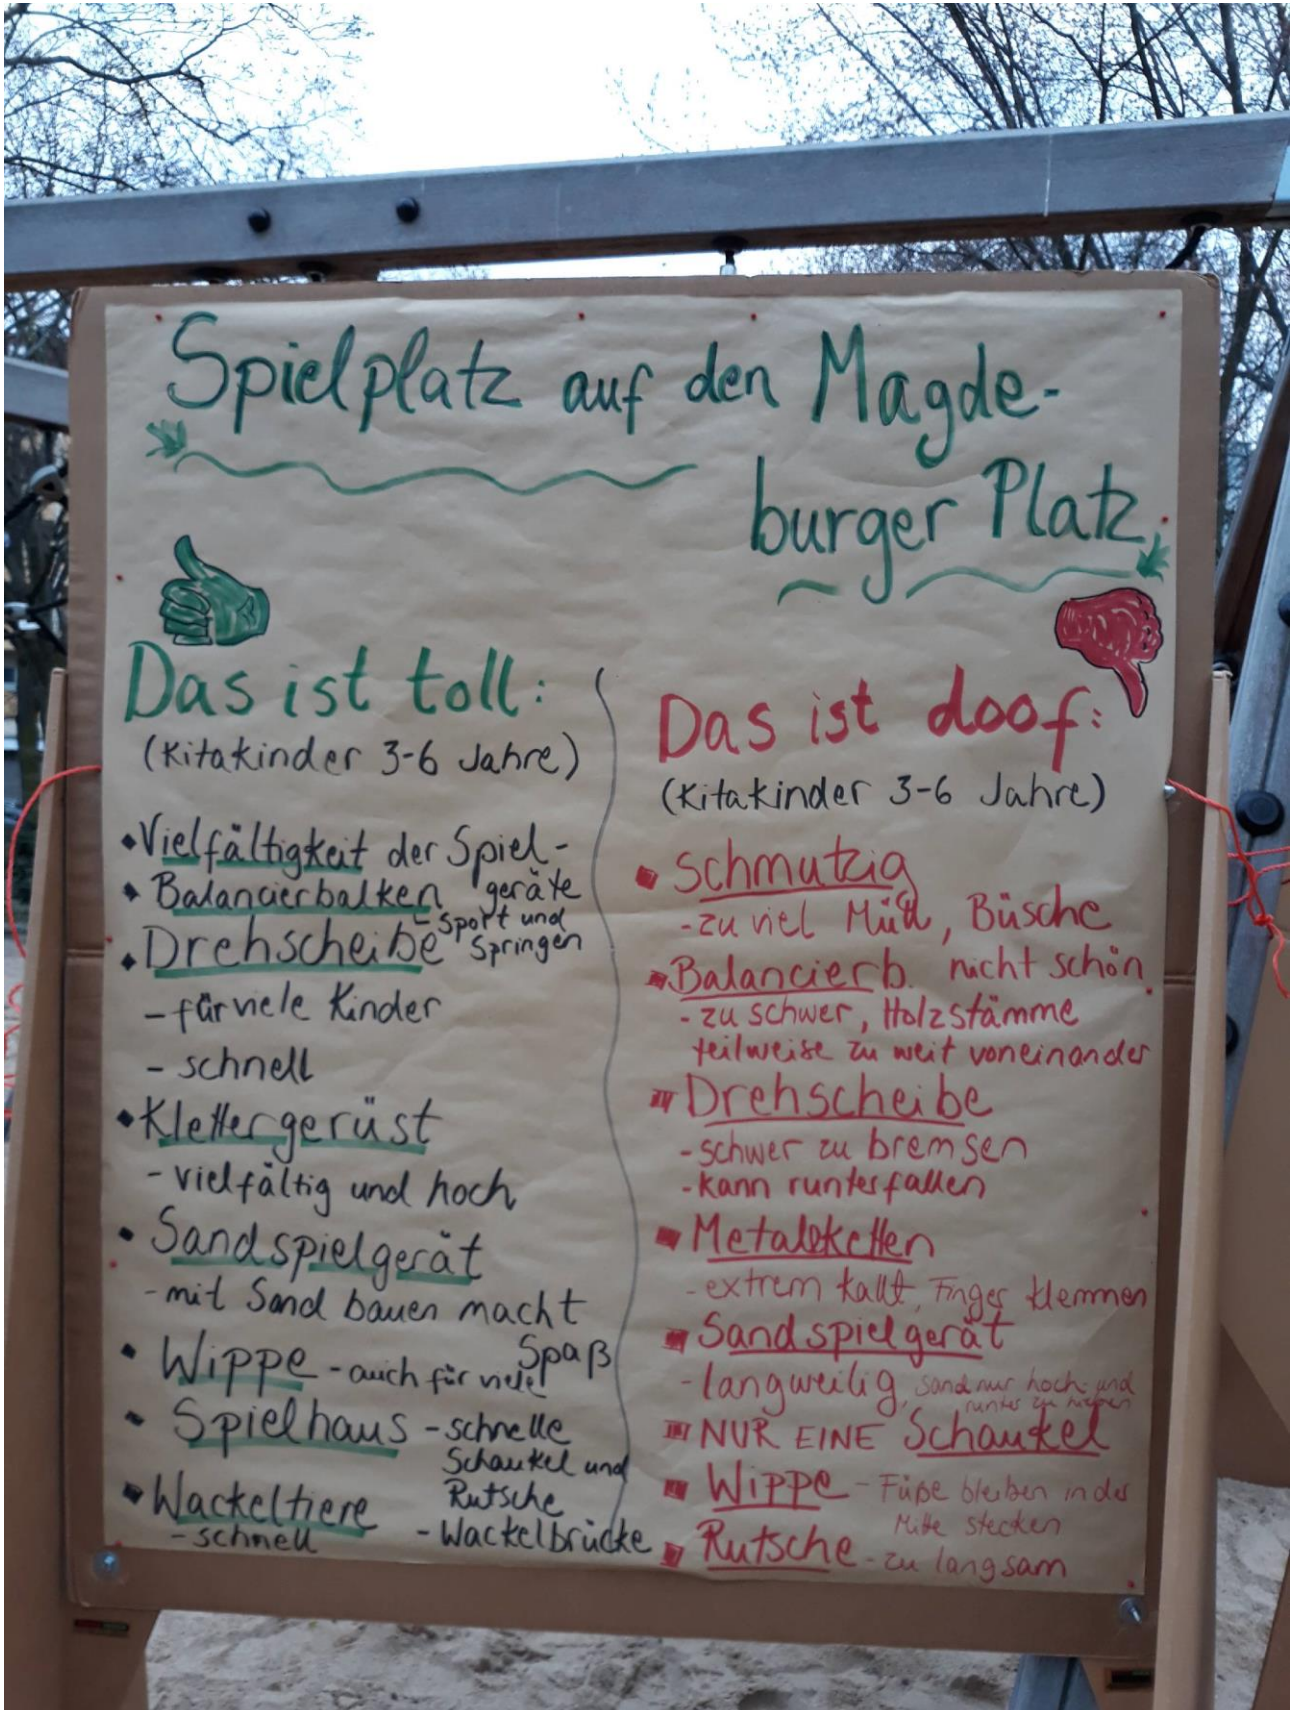 Spielplatz auf den Magde-
burger Platz
Das ist toll:
(Kitakinder 3-6 Jahre)
• Vielfältigkeit der Spiel-
geräte
• Balancierbalken
- Sport und
Springen
• Drehscheibe
- für viele Kinder
- schnell
• Klettergerüst
- vielfältig und hoch
• Sandspielgerät
- mit Sand bauen macht
Spaß
• Wippe - auch für viele
• Spielhaus - schnelle
Schaukel und
Rutsche
- Wackelbrücke
• Wackeltiere
- schnell
Das ist doof:
(Kitakinder 3-6 Jahre)
Schmutzig
- zu viel Müll, Büsche
nicht schön
Balancierb.
- zu schwer, Holzstämme
teilweise zu weit voneinander
Drehscheibe
- schwer zu bremsen
- kann runterfallen
Metallketten
- extrem kallt, Finger klemmen
Sandspielgerät
- langweilig, Sand nur hoch und
runter zu
NUR EINE Schaukel
Wippe - Füße bleiben in der
Mitte stecken
Rutsche - zu langsam